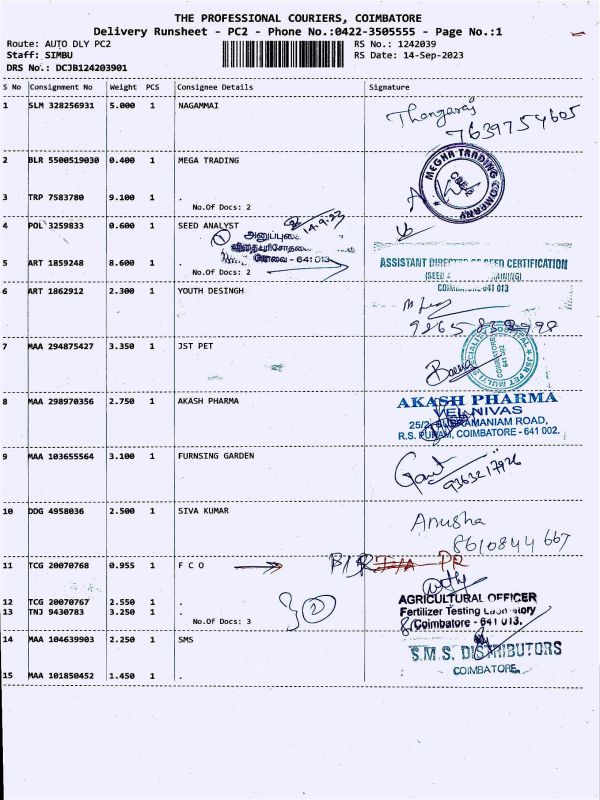 THE PROFESSIONAL COURIERS, COIMBATORE
Delivery Runsheet - PC2 - Phone No.:0422-3505555 - Page No.:1
Route: AUTO DLY PC2
RS No.: 1242039
Staff: SIMBU
RS Date: 14-Sep-2023
DRS No.: DCJB124203901
S No Consignment No Weight PCS Consignee Details Signature
1 SLM 328256931 5.000 1 NAGAMMAI
Thangaraj
7639754605
2 BLR 5500519030 0.400 1 MEGA TRADING
MEGHA TRADING COMPANY
CBE-
3 TRP 7583780 9.100 1 .
No.Of Docs: 2
4 POL 3259833 0.600 1 SEED ANALYST
14-9-23
1
5 ART 1859248 8.600 1 .
கோவை - 641 013
No.Of Docs: 2
ASSISTANT DIRECTOR OF SEED CERTIFICATION
(SEED
641 013
6 ART 1862912 2.300 1 YOUTH DESINGH
7 MAA 294875427 3.350 1 JST PET
JSR PET MULTI SPECIALITY HOSPITAL
COIMBATORE
8 MAA 298970356 2.750 1 AKASH PHARMA
AKASH PHARMA
VEL NIVAS
RAMANIAM ROAD,
R.S. PURAM, COIMBATORE - 641 002.
9 MAA 103655564 3.100 1 FURNSING GARDEN
9363217926
10 DDG 4958036 2.500 1 SIVA KUMAR
Anusha
8610844667
11 TCG 20070768 0.955 1 F C O
PR
12 TCG 20070767 2.550 1 .
13 TNJ 9430783 3.250 1 .
No.Of Docs: 3
2
AGRICULTURAL OFFICER
Fertilizer Testing Laboratory
Coimbatore - 641 013.
14 MAA 104639903 2.250 1 SMS
S.M.S. DISTRIBUTORS
COIMBATORE.
15 MAA 101850452 1.450 1 .